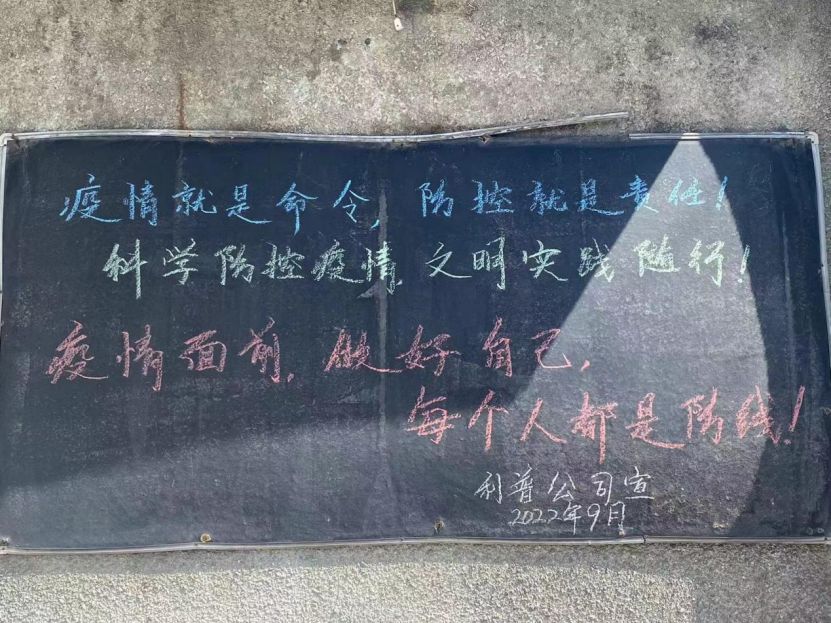 疫情就是命令，防控就是责任！
科学防控疫情，文明实践随行！
疫情面前，做好自己，
每个人都是防线！
利普公司宣
2022年9月